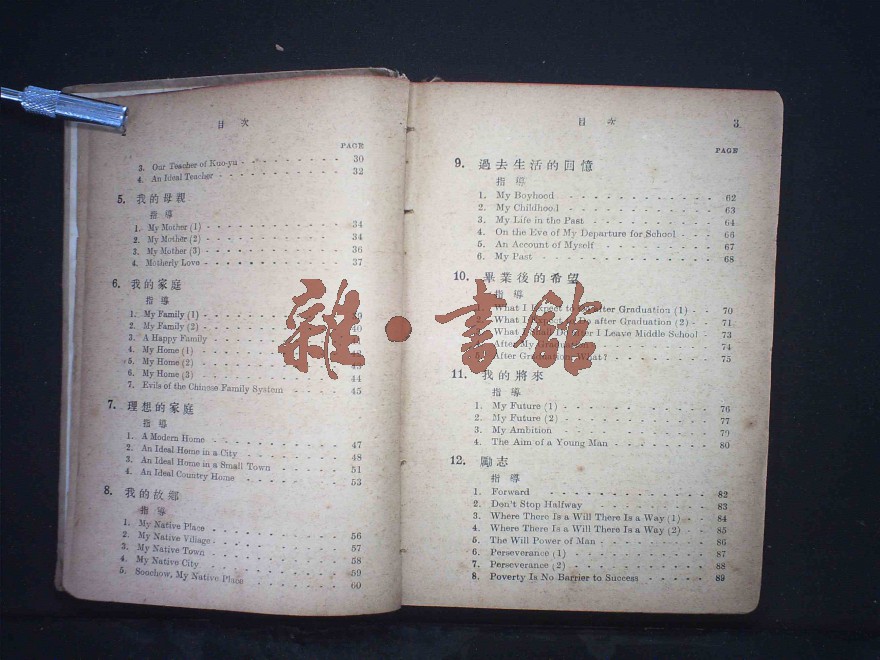 目 次
PAGE
3. Our Teacher of Kuo-yu 30
4. An Ideal Teacher 32
5. 我的母親
指導
1. My Mother (1) 34
2. My Mother (2) 34
3. My Mother (3) 36
4. Motherly Love 37
6. 我的家庭
指導
1. My Family (1)
2. My Family (2) 40
3. A Happy Family
4. My Home (1)
5. My Home (2)
6. My Home (3) 44
7. Evils of the Chinese Family System 45
7. 理想的家庭
指導
1. A Modern Home 47
2. An Ideal Home in a City 48
3. An Ideal Home in a Small Town 51
4. An Ideal Country Home 53
8. 我的故鄉
指導
1. My Native Place 56
2. My Native Village 57
3. My Native Town 58
4. My Native City 59
5. Soochow, My Native Place 60
目 次 3
PAGE
9. 過去生活的回憶
指導
1. My Boyhood 62
2. My Childhood 63
3. My Life in the Past 64
4. On the Eve of My Departure for School 66
5. An Account of Myself 67
6. My Past 68
10. 畢業後的希望
指導
1. What I Expect to after Graduation (1) 70
2. What I Expect to Do after Graduation (2) 71
3. What I Shall Do after I Leave Middle School 73
After My Graduation 74
After Graduation, What? 75
11. 我的將來
指導
1. My Future (1) 76
2. My Future (2) 77
3. My Ambition 79
4. The Aim of a Young Man 80
12. 勵志
指導
1. Forward 82
2. Don't Stop Halfway 83
3. Where There Is a Will There Is a Way (1) 84
4. Where There Is a Will There Is a Way (2) 85
5. The Will Power of Man 86
6. Perseverance (1) 87
7. Perseverance (2) 88
8. Poverty Is No Barrier to Success 89
雜·書館